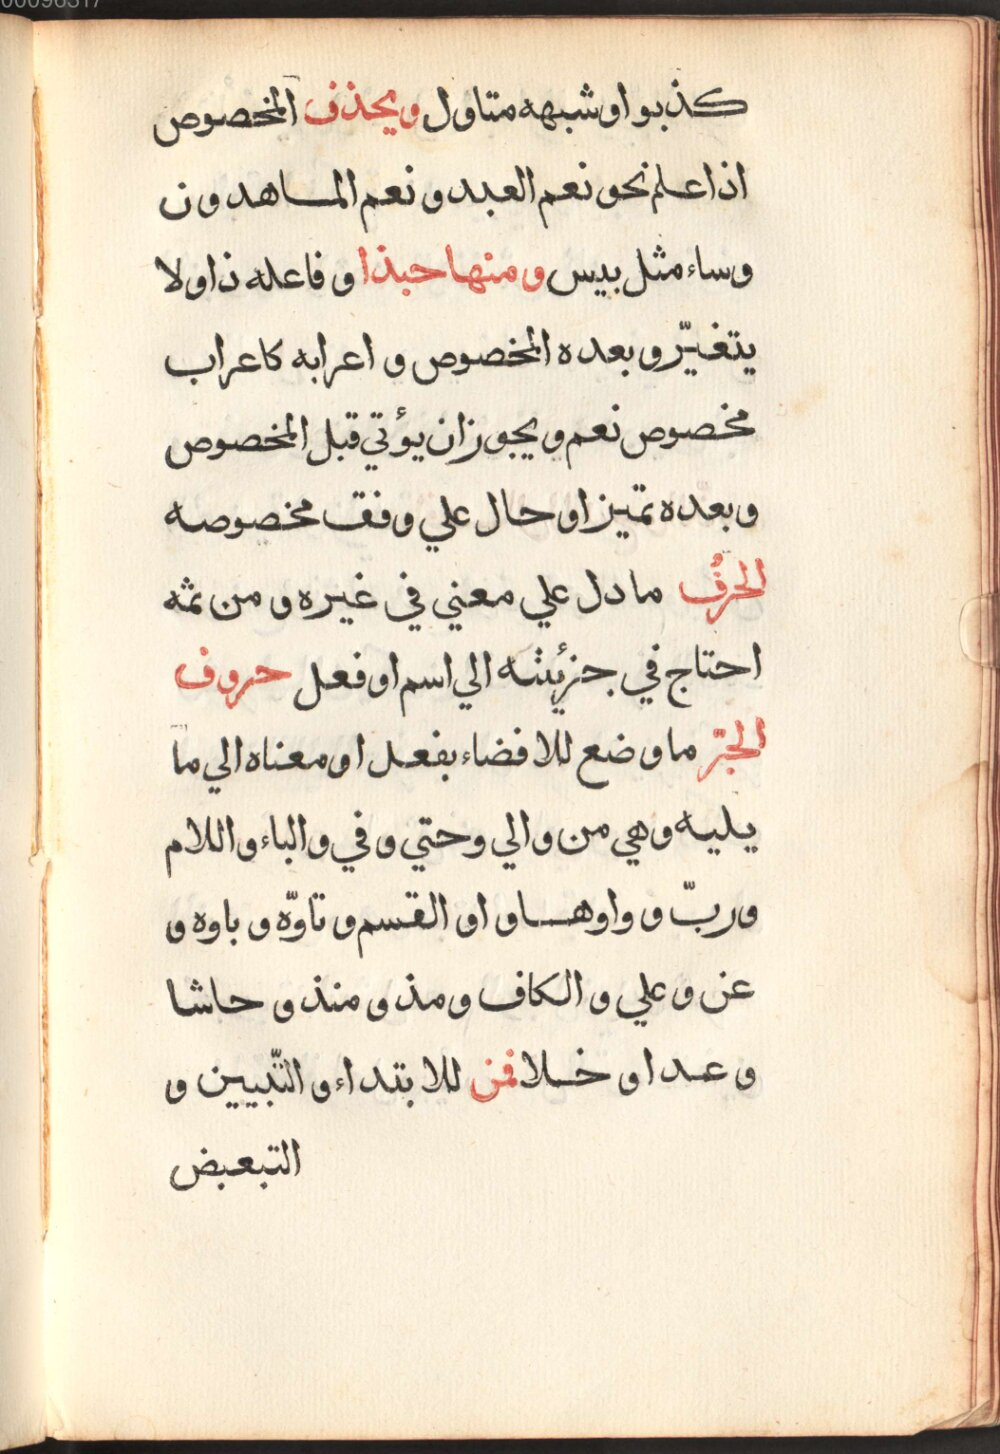 كذبوا وشبهه متاول ويحذف المخصوص
اذا علم نحو نعم العبد و نعم الماهدون
وساء مثل بيس ومنها حبذا و فاعله ذا ولا
يتغيّر و بعده المخصوص و اعرابه كاعراب
مخصوص نعم و يجوز ان يؤتي قبل المخصوص
و بعده تميز او حال علي وفق مخصوصه
الحرفُ ما دل علي معني في غيره و من ثمه
احتاج في جزئيته الي اسم او فعل حروف
الجرّ ما وضع للافضاء بفعل او معناه الي ما
يليه وهي من والي وحتي وفي والباء واللام
وربّ و واوها و او القسم و تاوّه و باوه و
عن و علي و الكاف و مذ و منذ و حاشا
و عدا و خلا فمن للابتداء و التّبيين و
التبعبض